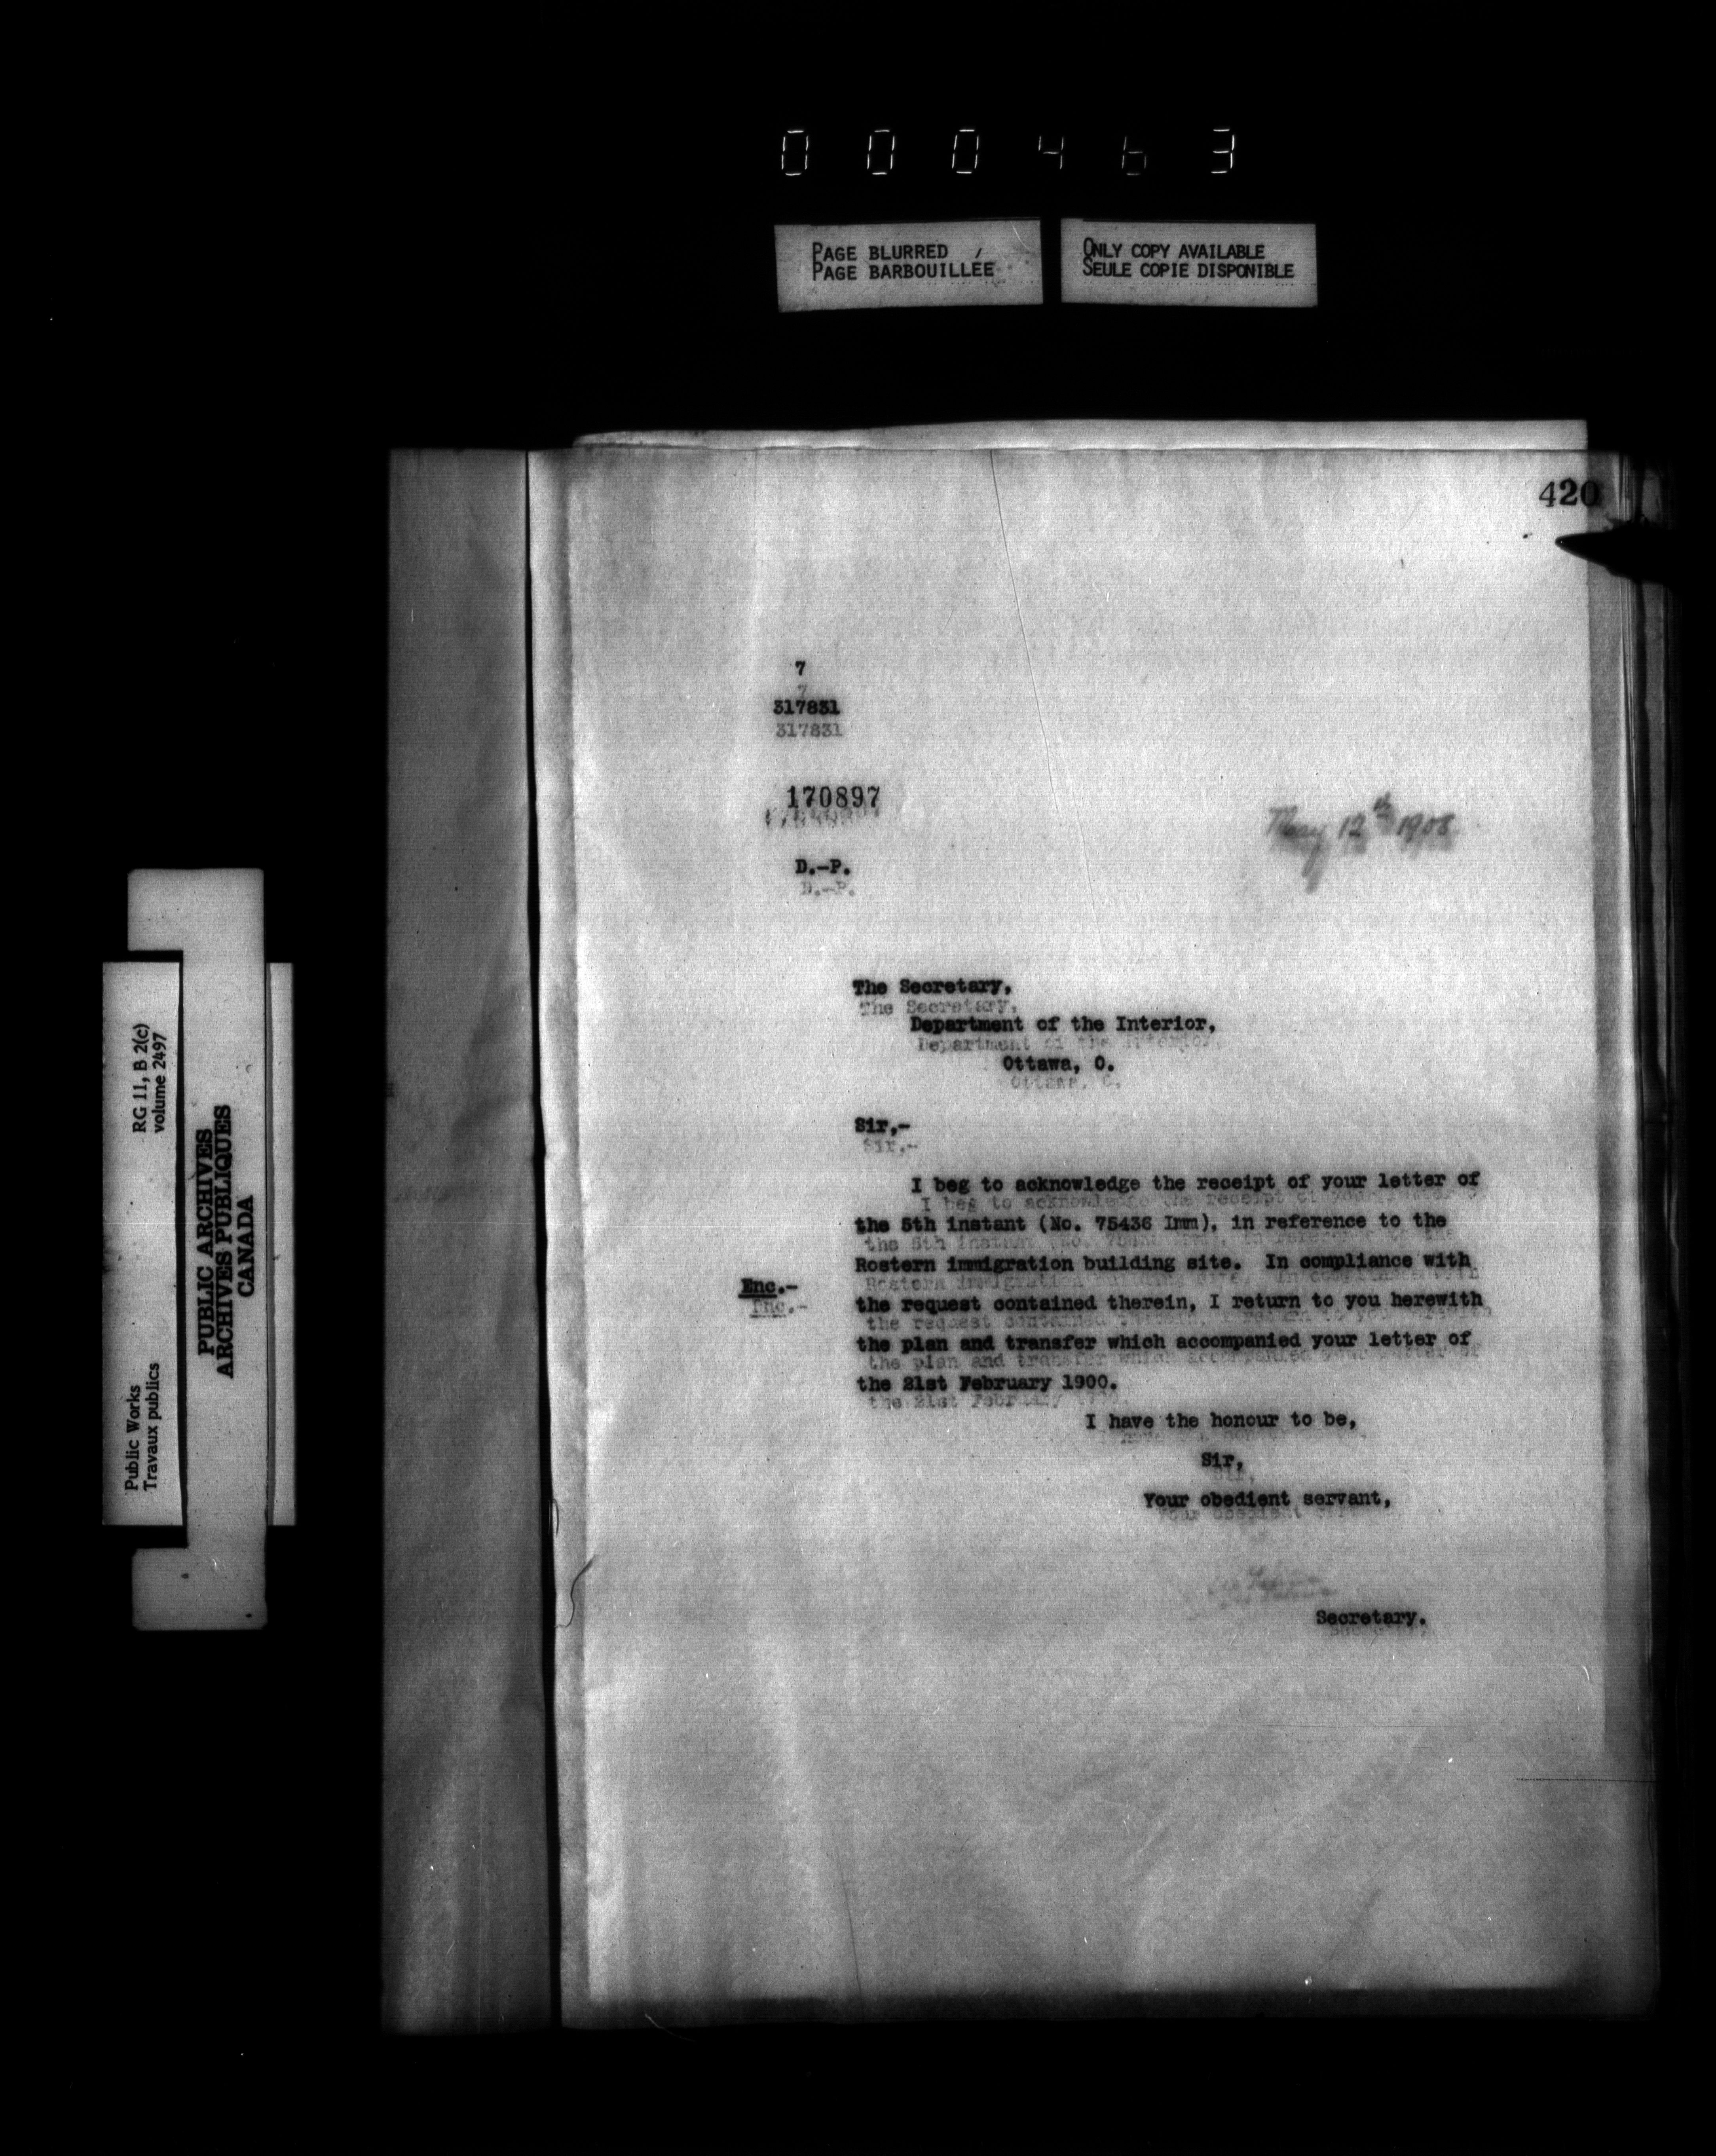 000463
PAGE BLURRED
PAGE BARBOUILLÉE
ONLY COPY AVAILABLE
SEULE COPIE DISPONIBLE
420
7
317831
170897
D.-P.
May 12th 1908
The Secretary,
Department of the Interior,
Ottawa, O.
Sir,-
I beg to acknowledge the receipt of your letter of
the 5th instant (No. 75436 Imm), in reference to the
Rostern immigration building site. In compliance with
Enc.-
the request contained therein, I return to you herewith
the plan and transfer which accompanied your letter of
the 21st February 1900.
I have the honour to be,
Sir,
Your obedient servant,
Secretary.
RG 11, B 2(c)
volume 2497
Public Works
Travaux publics
PUBLIC ARCHIVES
ARCHIVES PUBLIQUES
CANADA